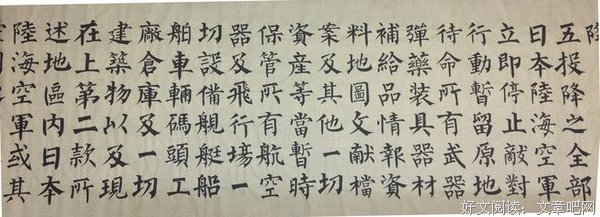 五投降之全部
日本陸海空軍
立即停止敵對
行動暫留原地
待命所有武器
彈藥装具器材
補給品情報資
料地圖文献檔
案及其他一切
資産等當暫時
保管所有航空
器及飛行場一
切設備艦艇船
舶車輛碼頭工
廠倉庫及一切
建築物以及現
在上第二款所
述地區内日本
陸海空軍或其
好文阅读：文章吧网